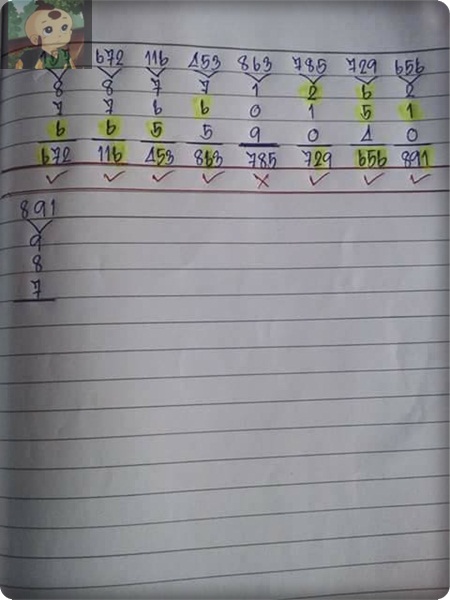 672 116 453 863 785 729 656
8 8 7 7 1 2 6 2
7 7 6 6 0 1 5 1
6 6 5 5 9 0 4 0
672 116 453 863 785 729 656 891
✓ ✓ ✓ ✓ × ✓ ✓ ✓
891
9
8
7